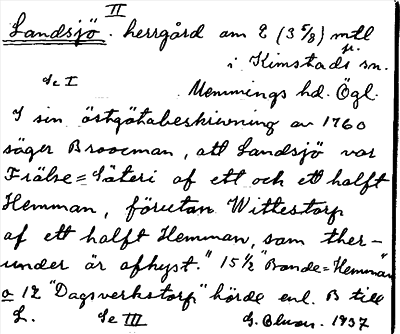 II
Landsjö. herrgård om 2 (3 5/8) mtl
i Kimstads sn.
Se I
Memmings hd. Ögl.
I sin östgötabeskrivning av 1760
säger Broocman, att Landsjö var
Frälse=Säteri af ett och ett halft
Hemman, förutan Wittestorp
af ett halft Hemman, som ther-
under är afhyst." 15 1/2 "Bonde=Hemman"
o 12 "Dagsverkstorp" hörde enl. B till
L. Se III
G. Olson. 1937